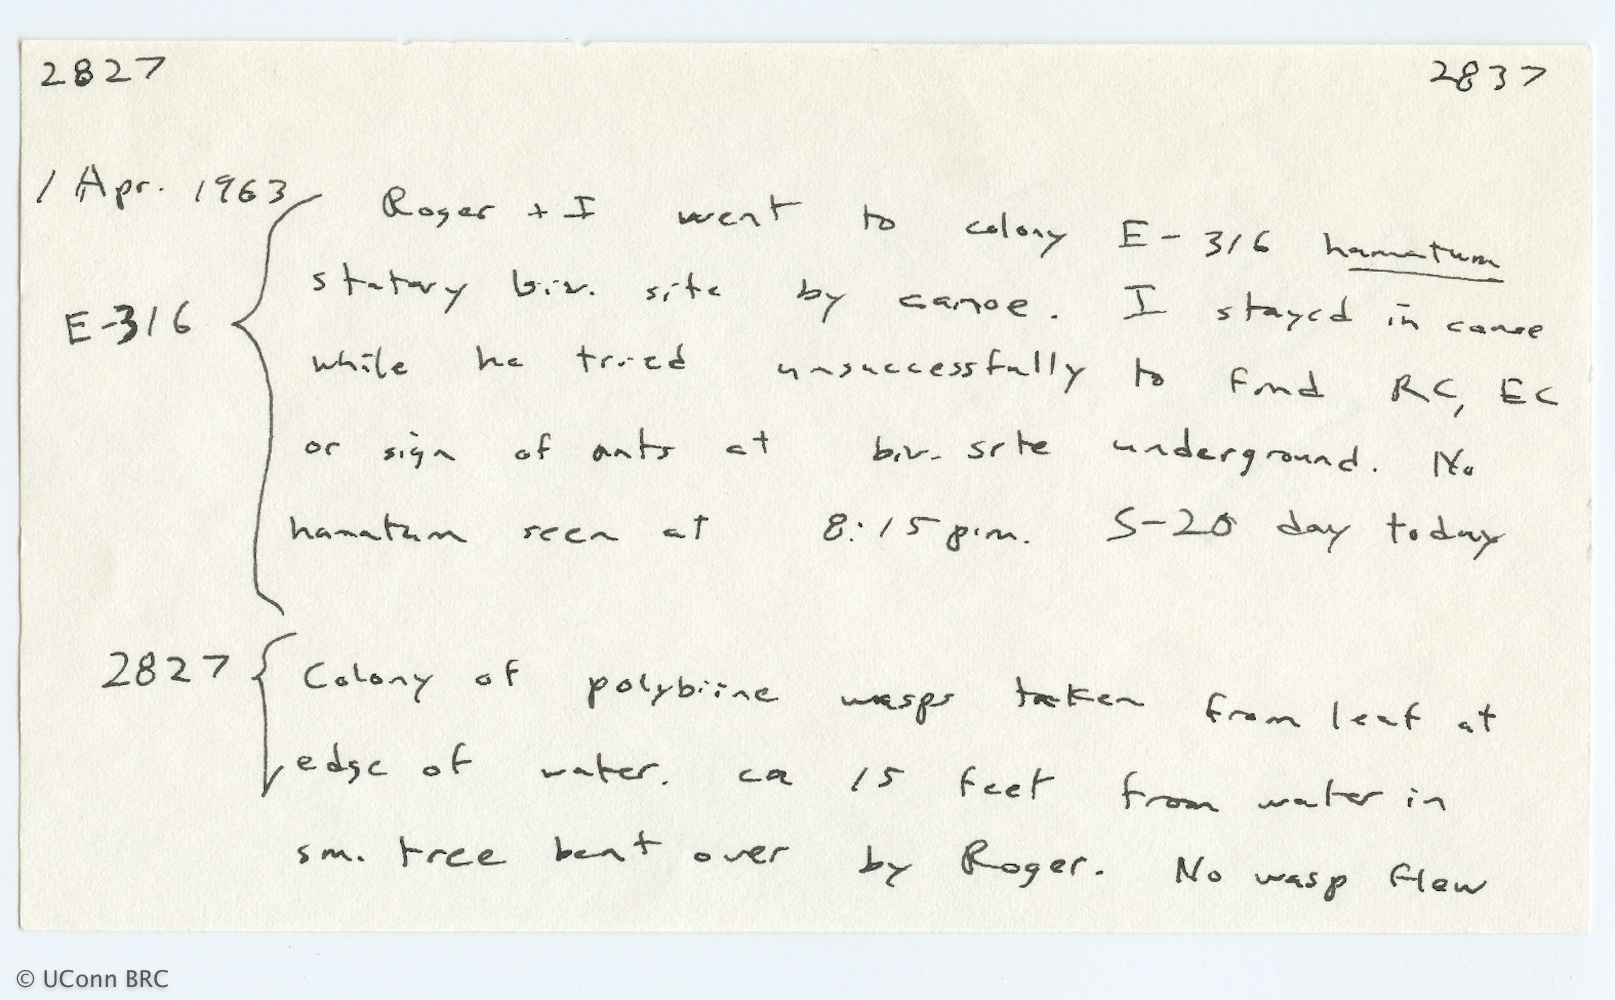 2827 2837
1 Apr. 1963 Roger + I went to colony E-316 hamatum
statary biv. site by canoe. I stayed in canoe
E-316
while he tried unsuccessfully to find RC, EC
or sign of ants at biv. site underground. No
hamatum seen at 8:15 p.m. S-20 day today
2827 Colony of polybiine wasps taken from leaf at
edge of water. ca 15 feet from water in
sm. tree bent over by Roger. No wasp flew
© UConn BRC